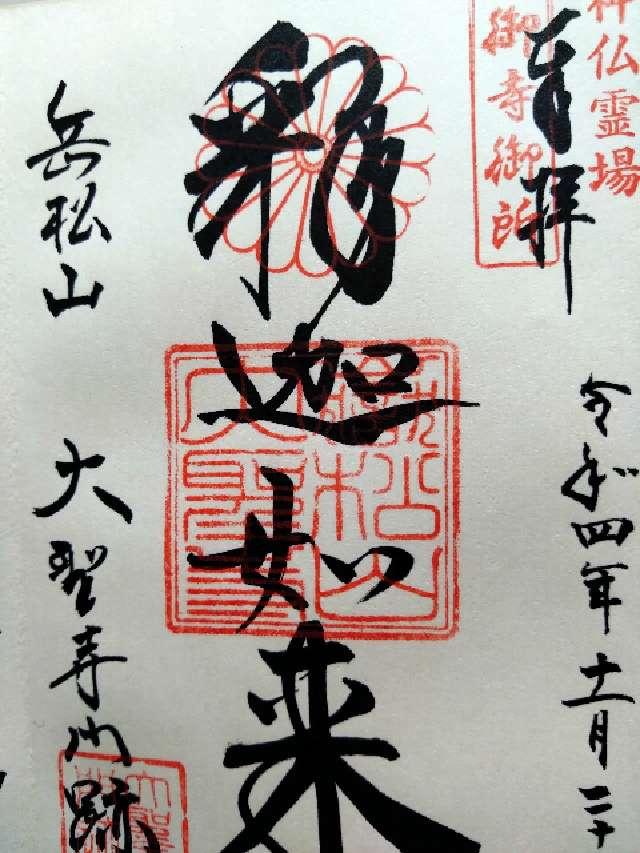 神仏霊場
御寺御所
奉拝
令和四年十一月二十
釈迦如来
岳松山
大聖寺門跡